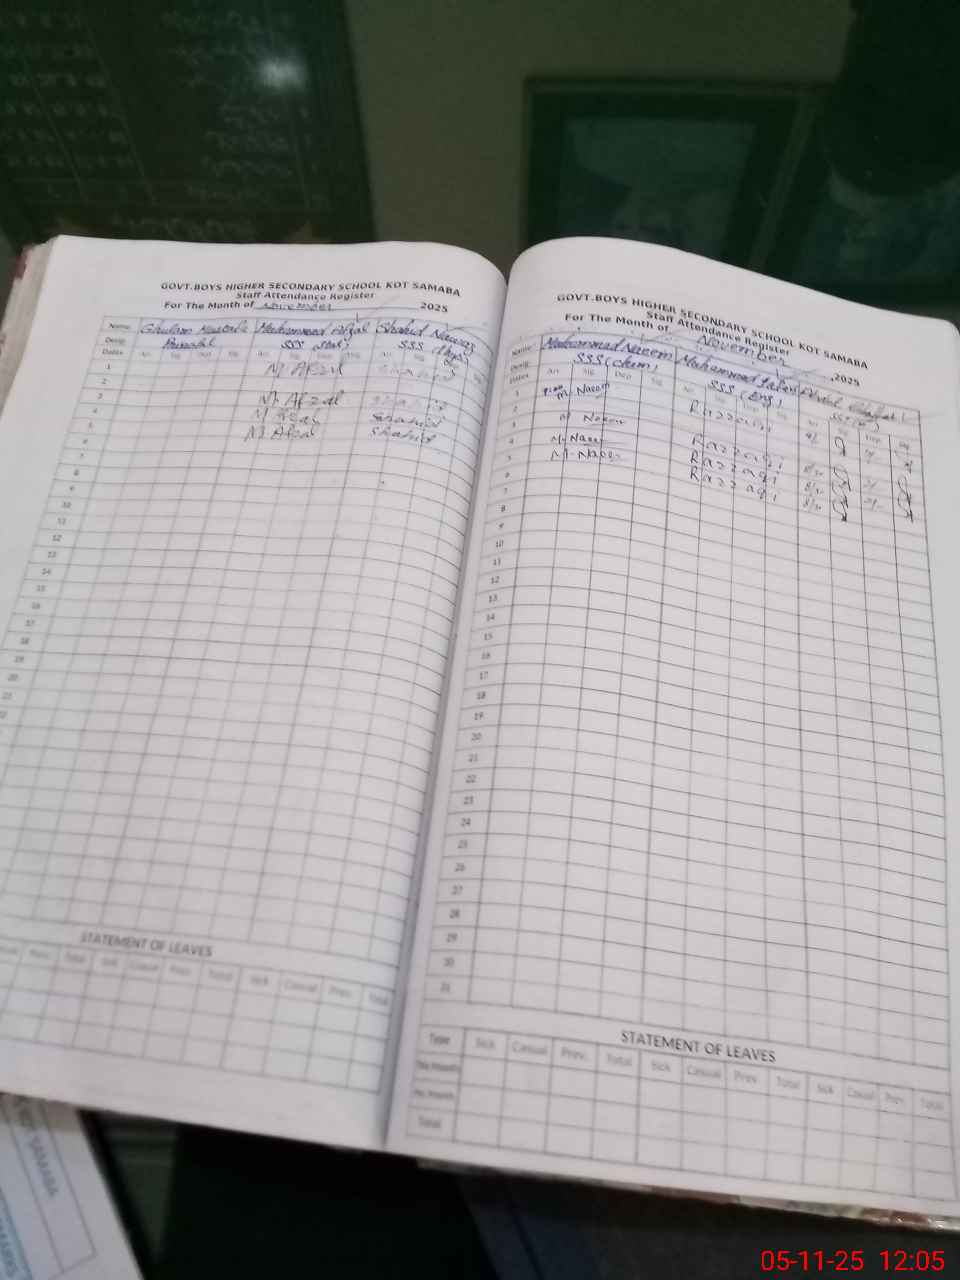 GOVT.BOYS HIGHER SECONDARY SCHOOL KOT SAMABA
Staff Attendance Register
For The Month of November 2025
Name Ghulam Mustafa Muhammad Afzal Shahid Nawaz
Desig: SSS (Stat) SSS
Dates Arr. Sig Dep Sig Arr. Sig Dep Sig Arr. Sig Sig
1 M. Afzal Shahid
2
3 M. Afzal Shahid
4 M. Afzal Shahid
5 M. Afzal Shahid
6
7
8
9
10
11
12
13
14
15
16
17
18
19
20
21
22
STATEMENT OF LEAVES
Prev. Total Sick Casual Prev. Total Sick Casual Prev. Total
GOVT.BOYS HIGHER SECONDARY SCHOOL KOT SAMABA
Staff Attendance Register
For The Month of November 2025
Name Muhammad Naeem Muhammad
Desig: SSS (Chem) SSS (Eng)
Dates Arr. Sig Dep Sig Arr. Sig Dep Sig Arr. Sig Dep Sig
1 M. Naeem Razzaqi
2
3 M. Naeem Razzaqi
4 M. Naeem Razzaqi
5 M. Naeem Razzaqi
6
7
8
9
10
11
12
13
14
15
16
17
18
19
20
21
22
23
24
25
26
27
28
29
30
31
STATEMENT OF LEAVES
Type Sick Casual Prev. Total Sick Casual Prev. Total Sick Casual Prev. Total
This Month
Pre. Month
Total
SAMABA
05-11-25 12:05